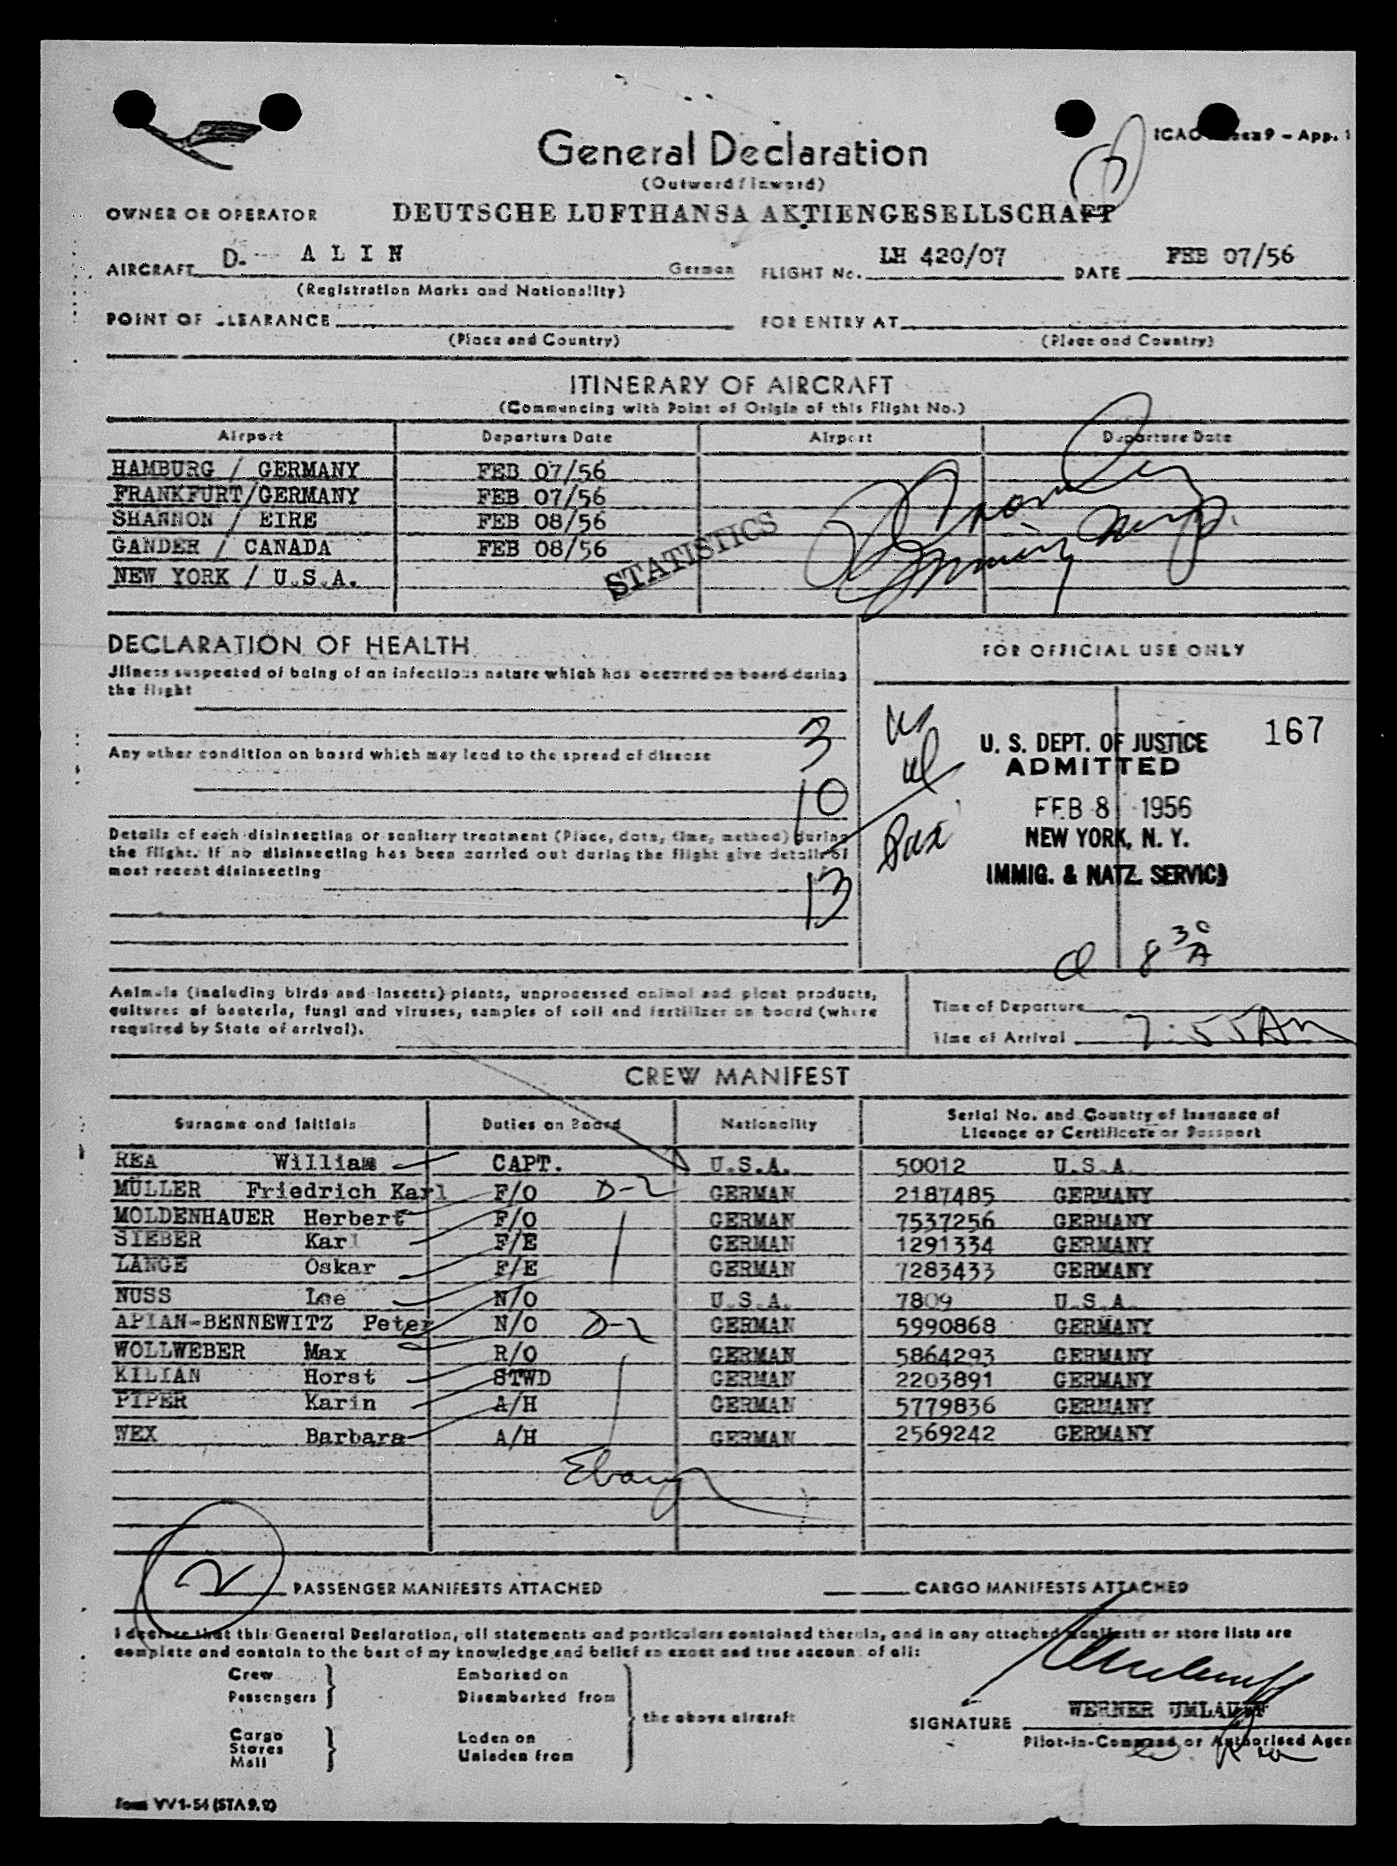 ICAO Annex 9 - App. 1
General Declaration
(Outward/Inward)
OWNER OR OPERATOR DEUTSCHE LUFTHANSA AKTIENGESELLSCHAFT
AIRCRAFT D- ALIN German FLIGHT No. LH 420/07 DATE FEB 07/56
(Registration Marks and Nationality)
POINT OF CLEARANCE FOR ENTRY AT
(Place and Country) (Place and Country)
ITINERARY OF AIRCRAFT
(Commencing with Point of Origin of this Flight No.)
Airport Departure Date Airport Departure Date
HAMBURG / GERMANY FEB 07/56
FRANKFURT/GERMANY FEB 07/56
SHANNON / EIRE FEB 08/56
GANDER / CANADA FEB 08/56
NEW YORK / U.S.A.
STATISTICS
DECLARATION OF HEALTH
Jllness suspected of being of an infectious nature which has occured on board during
the flight
Any other condition on board which may lead to the spread of disease
Details of each disinsecting or sanitary treatment (Place, date, time, method) during
the flight. If no disinsecting has been carried out during the flight give details of
most recent disinsecting
3
10
13
FOR OFFICIAL USE ONLY
167
U. S. DEPT. OF JUSTICE
ADMITTED
FEB 8 1956
NEW YORK, N. Y.
IMMIG. & NATZ. SERVICE
8 30 A
Animals (including birds and insects) plants, unprocessed animal and plant products,
cultures of bacteria, fungi and viruses, samples of soil and fertilizer on board (where
required by State of arrival).
Time of Departure
Time of Arrival 7:55 AM
CREW MANIFEST
Surname and Initials Duties on Board Nationality Serial No. and Country of Issuance of
Licence or Certificate or Passport
REA William CAPT. U.S.A. 50012 U.S.A.
MÜLLER Friedrich Karl F/O D-2 GERMAN 2187485 GERMANY
MOLDENHAUER Herbert F/O GERMAN 7537256 GERMANY
SIEBER Karl F/E GERMAN 1291334 GERMANY
LANGE Oskar F/E GERMAN 7283433 GERMANY
NUSS Lee N/O U.S.A. 7809 U.S.A.
APIAN-BENNEWITZ Peter N/O D-2 GERMAN 5990868 GERMANY
WOLLWEBER Max R/O GERMAN 5864293 GERMANY
KILIAN Horst STWD GERMAN 2203891 GERMANY
PIPER Karin A/H GERMAN 5779836 GERMANY
WEX Barbara A/H GERMAN 2569242 GERMANY
2 PASSENGER MANIFESTS ATTACHED CARGO MANIFESTS ATTACHED
I declare that this General Declaration, all statements and particulars contained therein, and in any attached manifests or store lists are
complete and contain to the best of my knowledge and belief an exact and true account of all:
Crew Embarked on
Passengers Disembarked from
the above aircraft
Cargo Laden on
Stores Unladen from
Mail
SIGNATURE WERNER UMLAUFF
Pilot-in-Command or Authorised Agen
Form VV1-54 (STA 9.9)